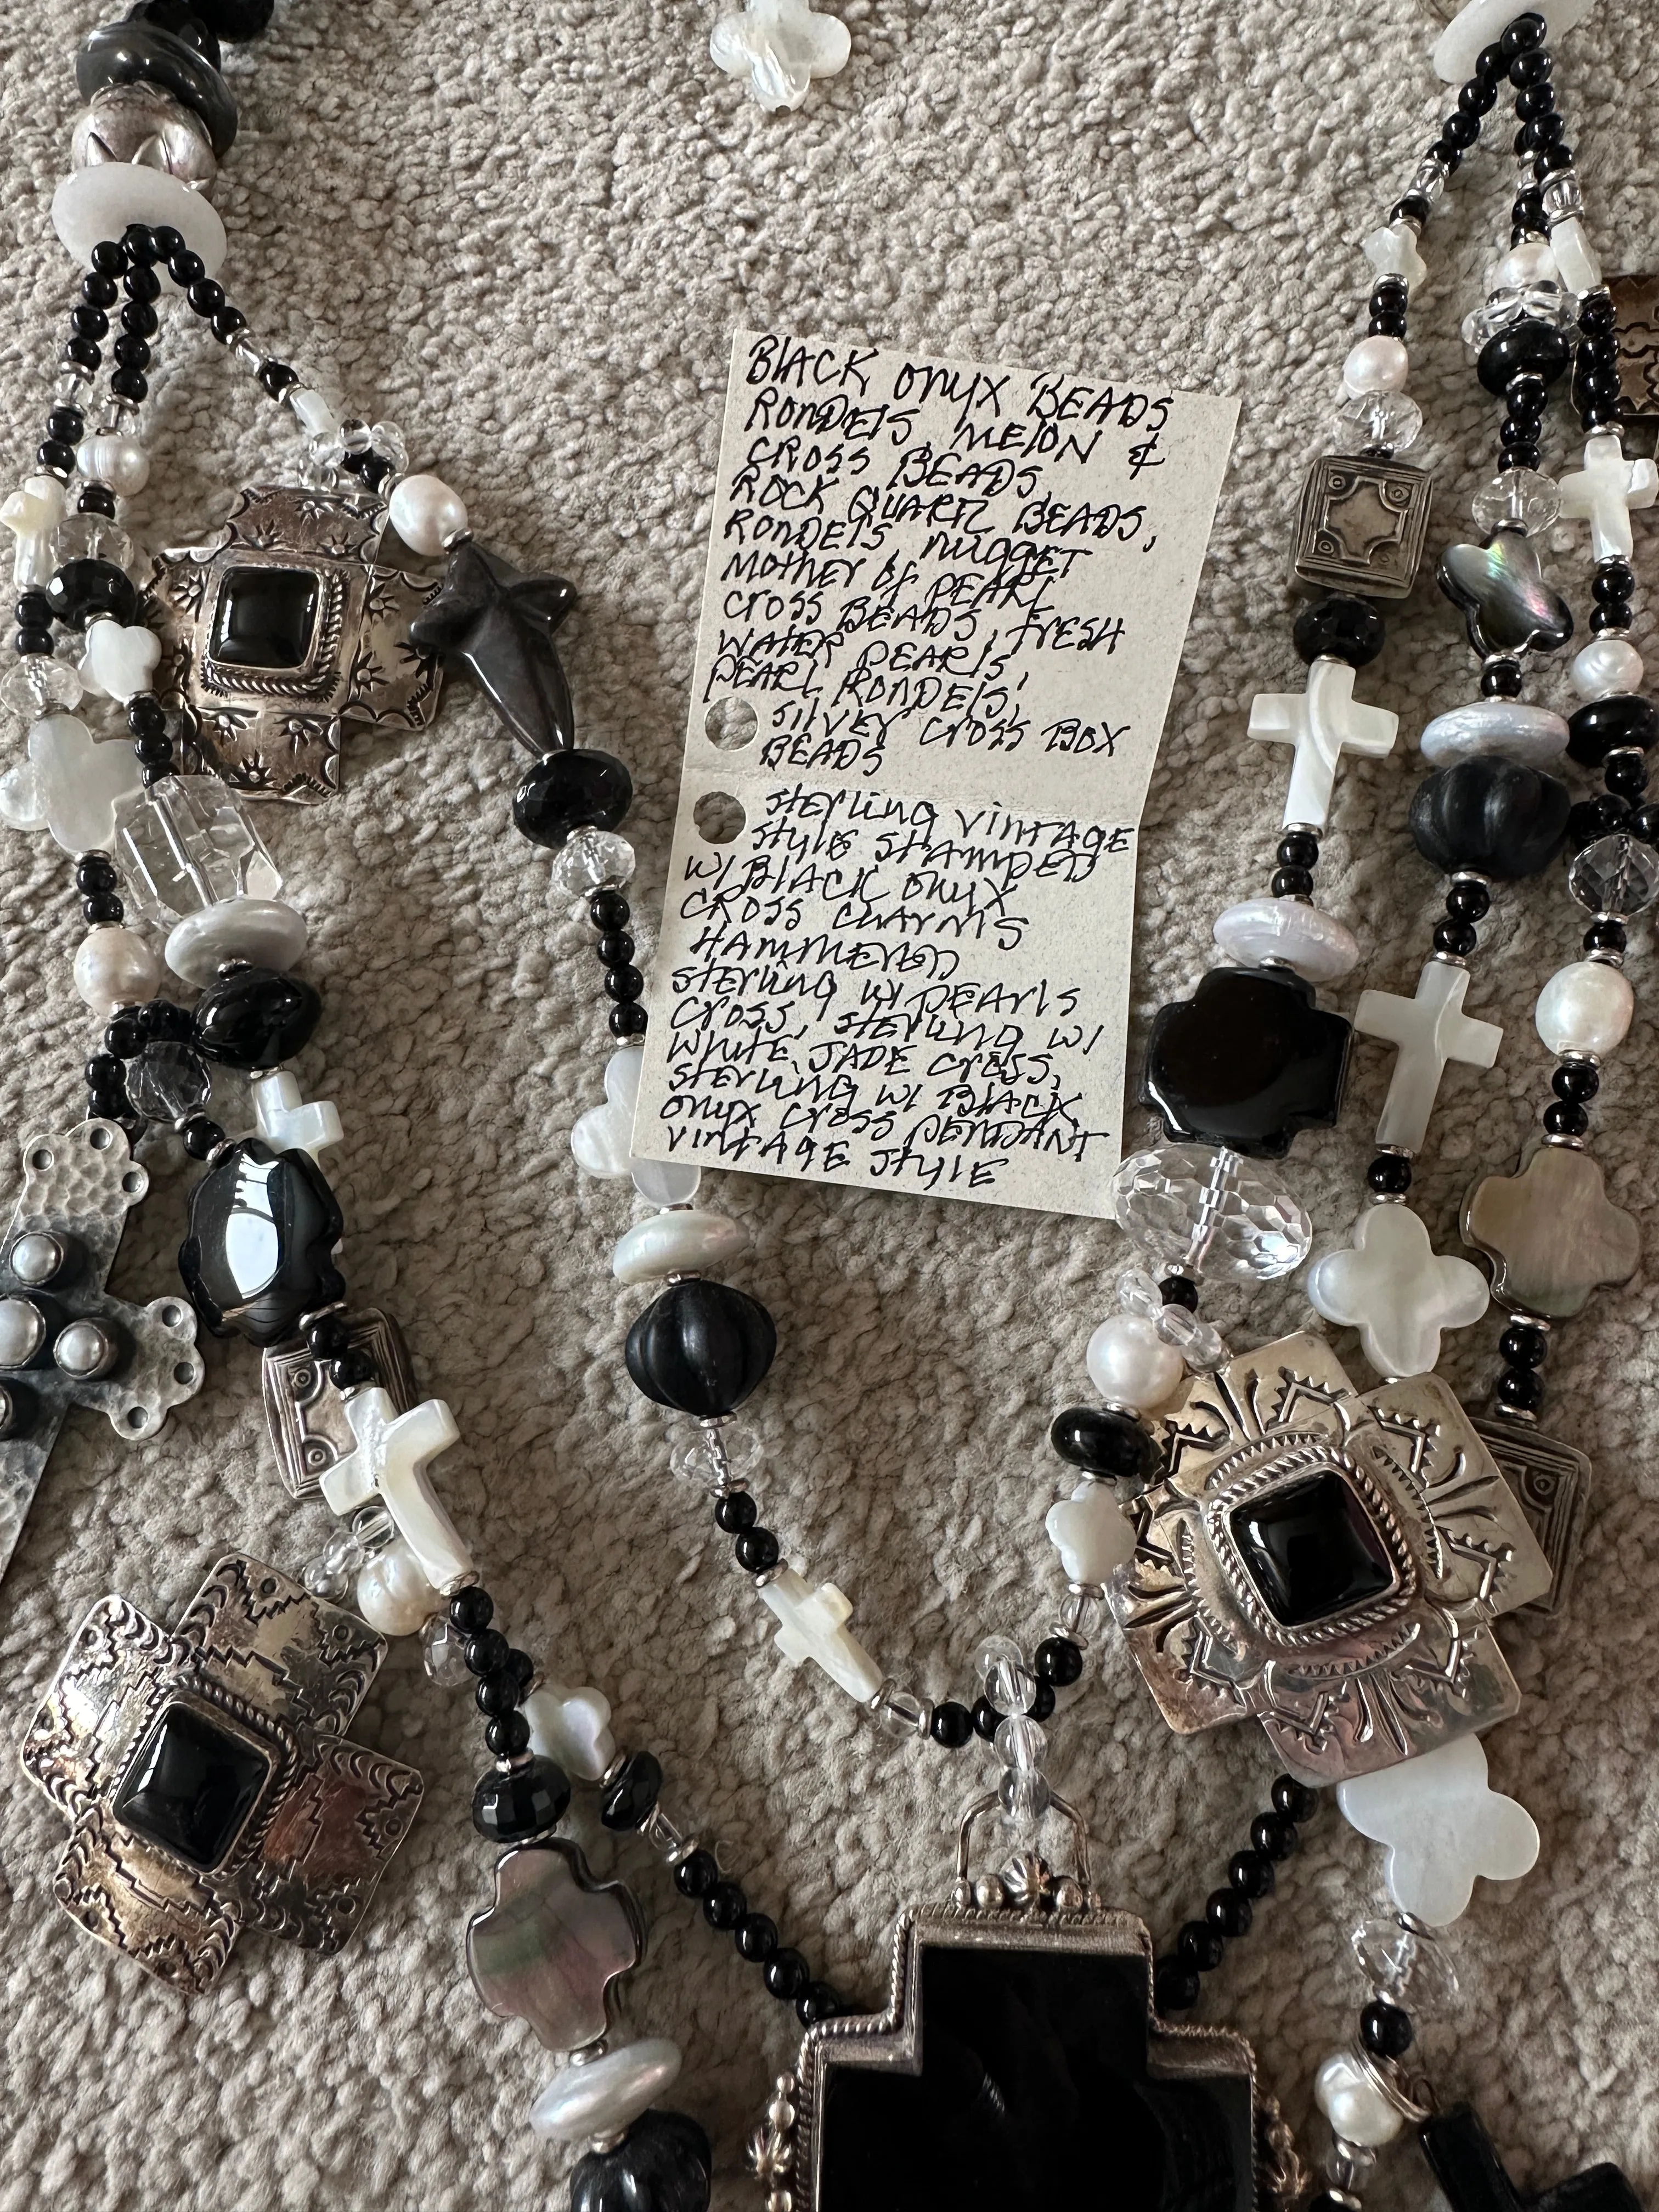 BLACK ONYX BEADS
RONDELS, MELON &
CROSS BEADS
ROCK QUARTZ BEADS,
RONDELS, NUGGET
MOTHER OF PEARL
CROSS BEADS, FRESH
WATER PEARLS,
PEARL RONDELS,
SILVER CROSS BOX
BEADS
STERLING VINTAGE
STYLE STAMPED
W/ BLACK ONYX
CROSS CHARMS
HAMMERED
STERLING W/ PEARLS
CROSS, STERLING W/
WHITE JADE CROSS,
STERLING W/ BLACK
ONYX CROSS PENDANT
VINTAGE STYLE